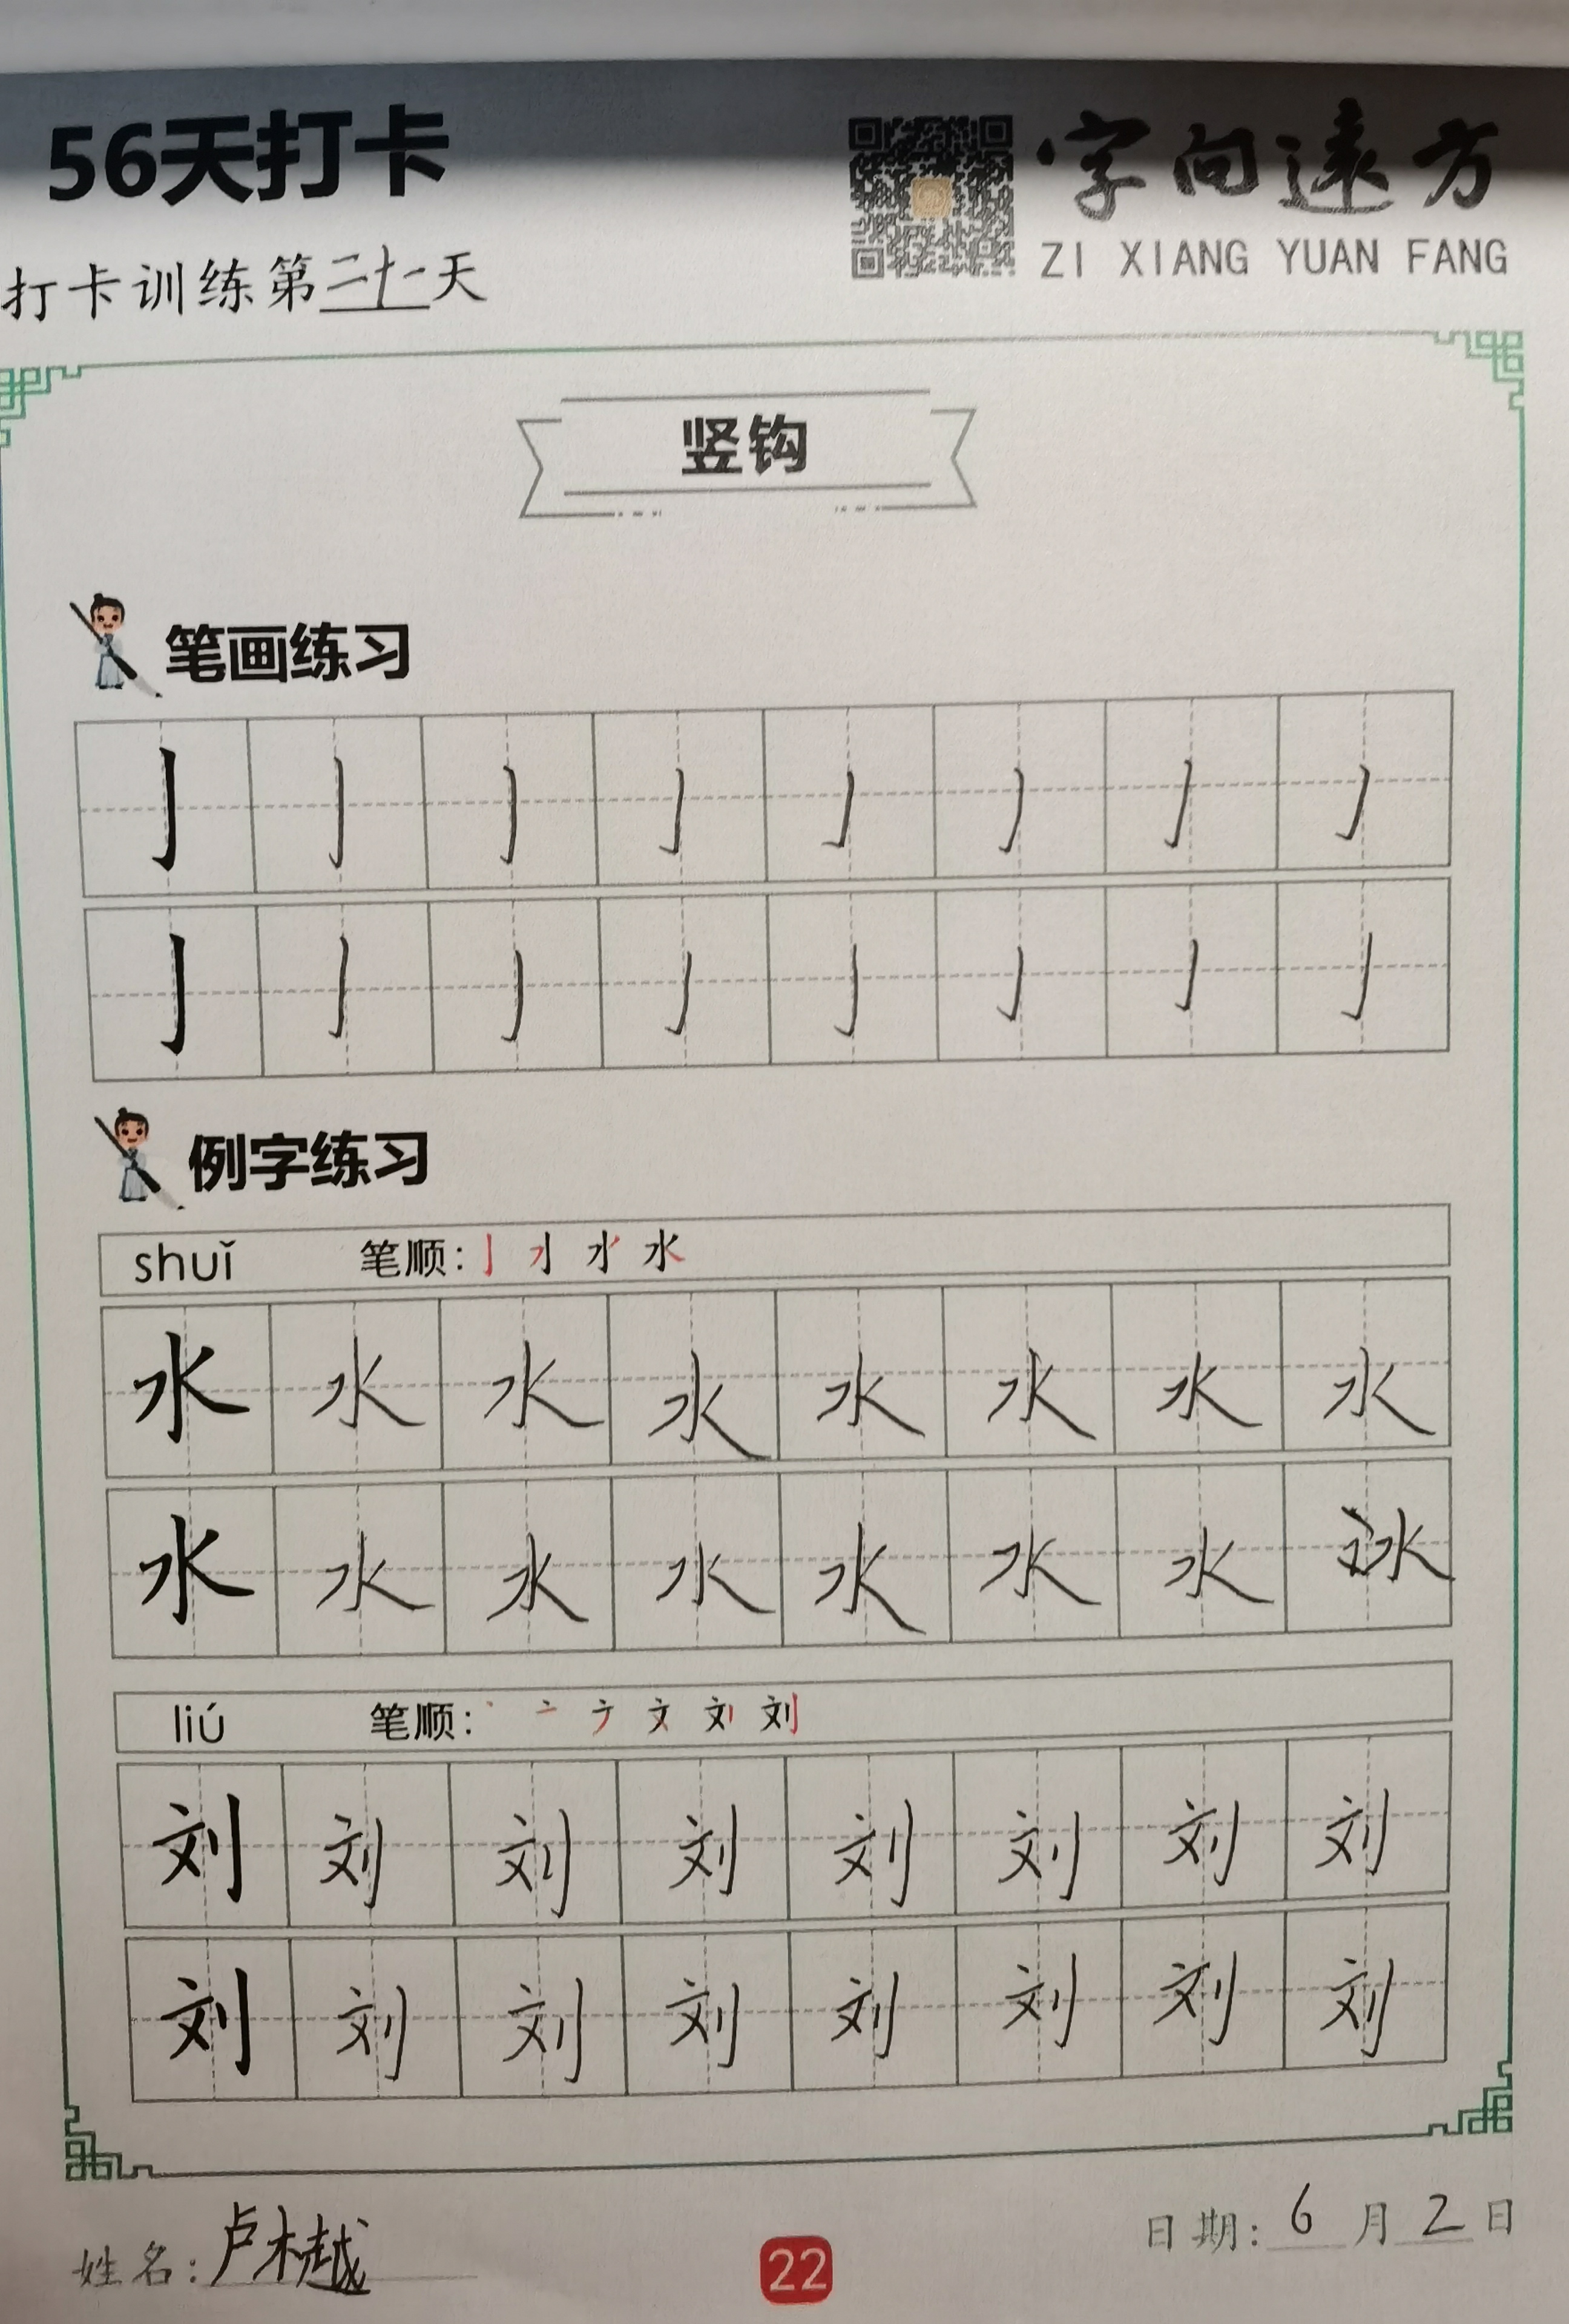 56天打卡
字向远方
ZI XIANG YUAN FANG
打卡训练第二十一天
竖钩
笔画练习
亅 亅 亅 亅 亅 亅 亅 亅
亅 亅 亅 亅 亅 亅 亅 亅
例字练习
shuǐ 笔顺:
水 水 水 水 水 水 水 水
水 水 水 水 水 水 水 冰
liú 笔顺:
刘 刘 刘 刘 刘 刘 刘 刘
刘 刘 刘 刘 刘 刘 刘 刘
姓名:卢木越
22
日期:6月2日